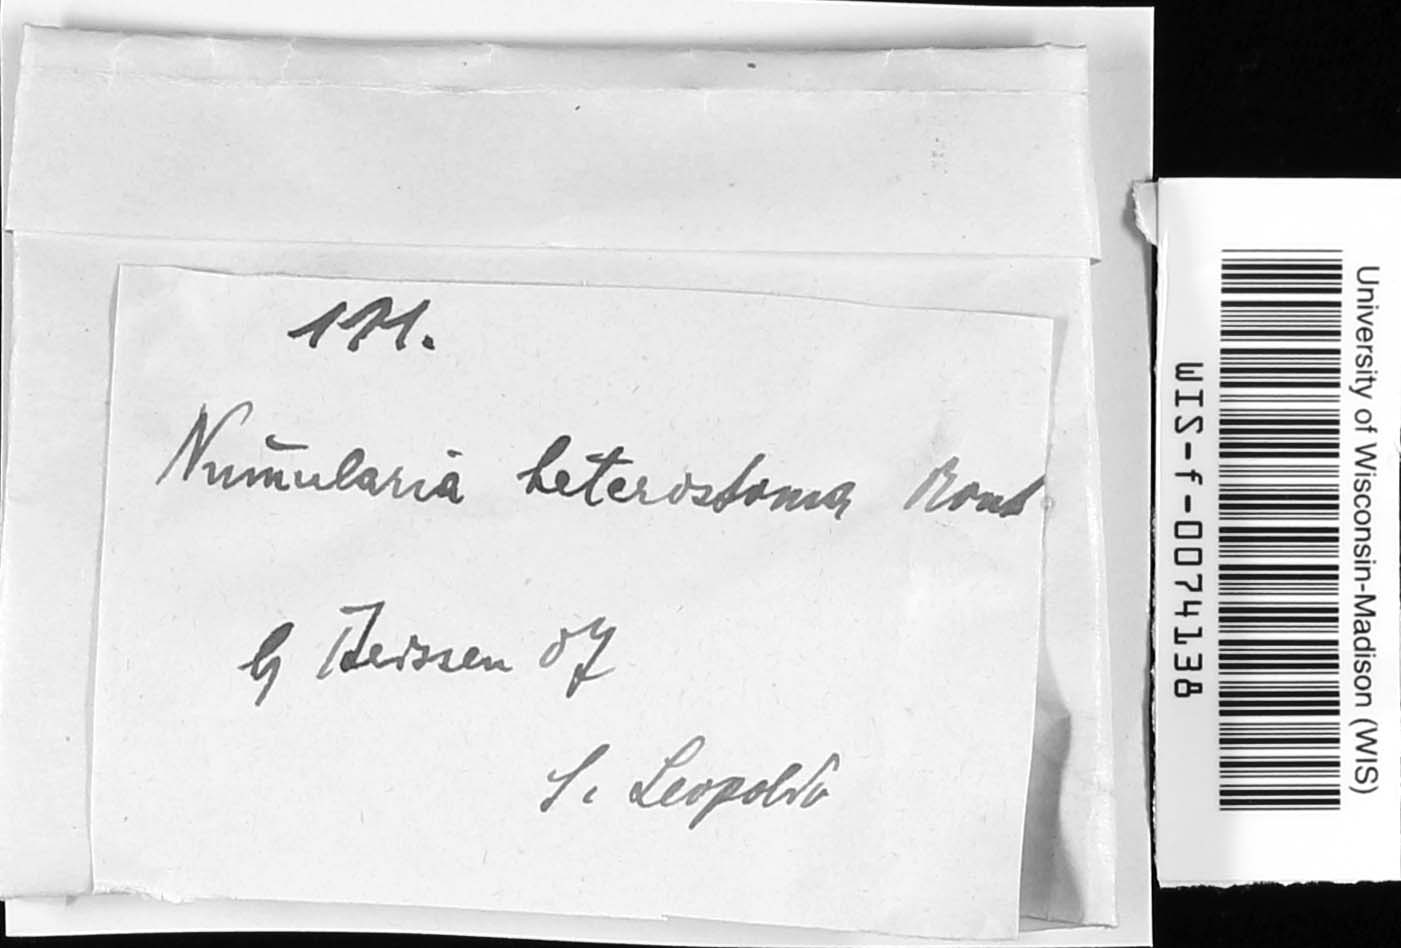 171.
Num̄ularia heterostoma Mont
lg Theissen 07
S. Leopoldo
University of Wisconsin-Madison (WIS)
WIS-f-0074138